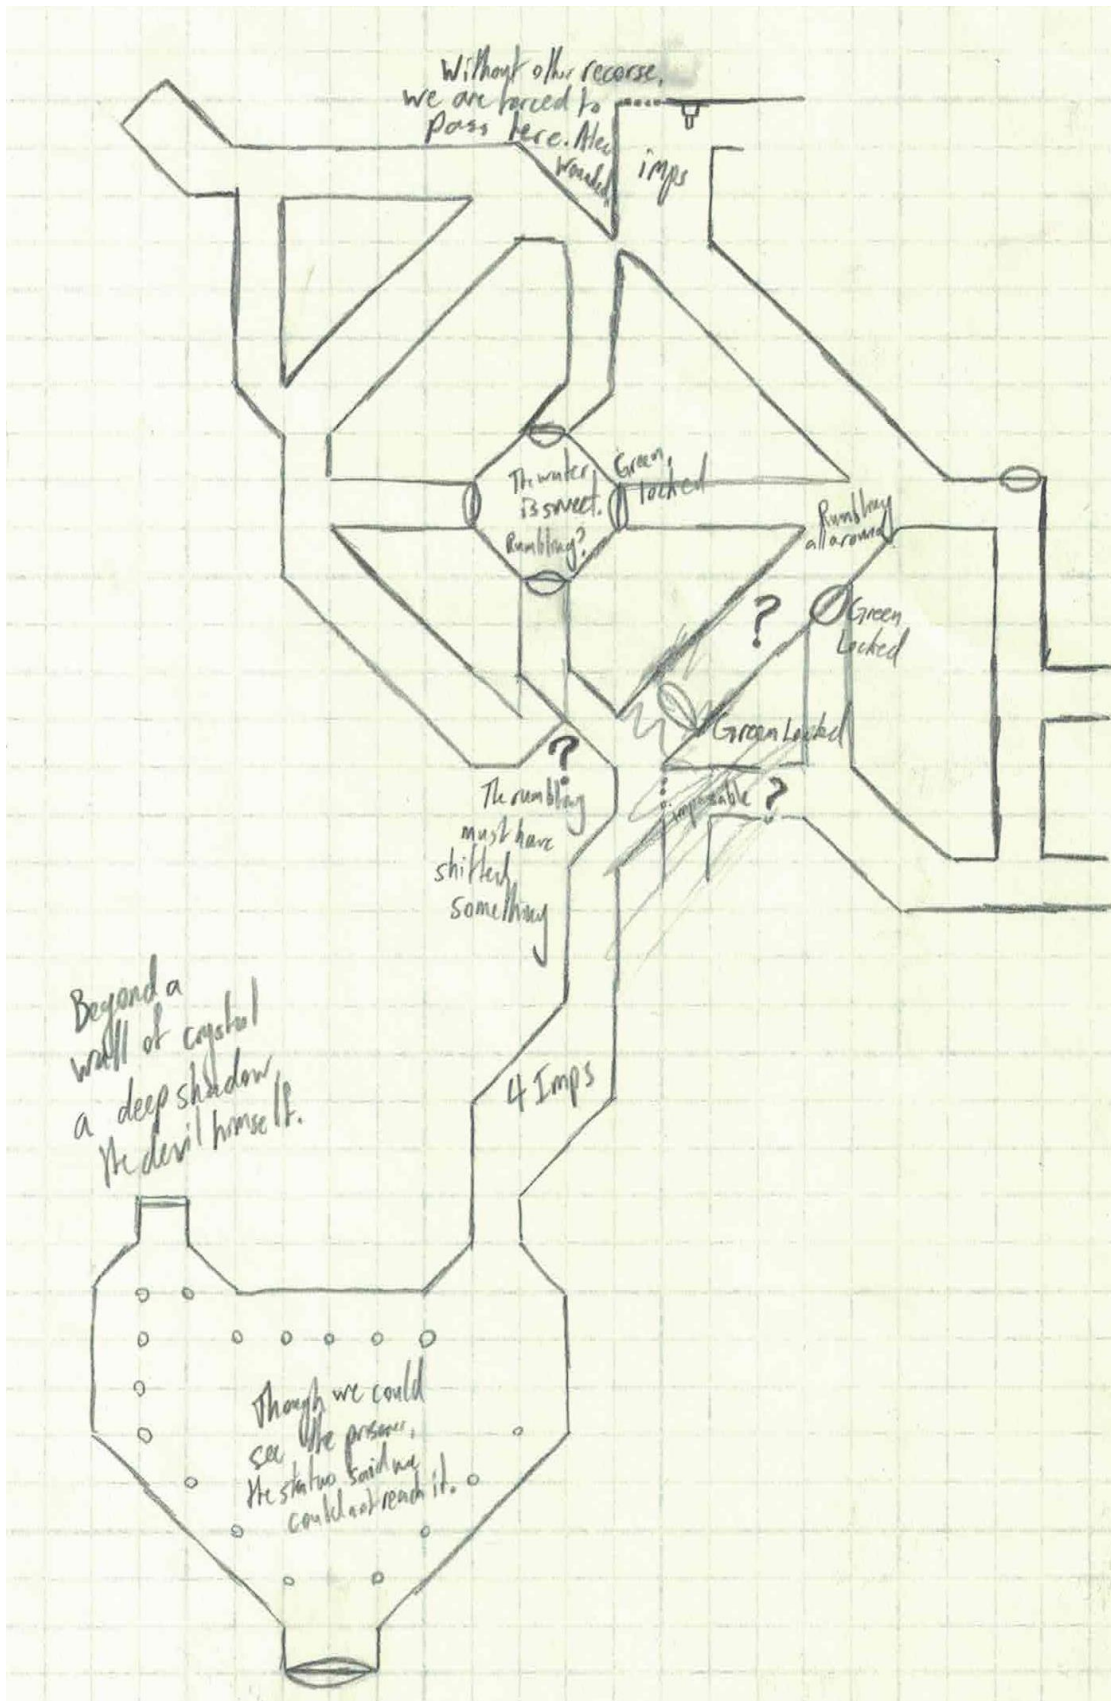 Without other recorse,
we are forced to
pass here. Alec
wounded.
imps
The water
is sweet.
Rumbling?
Green,
locked
Rumbling
all around
?
Green
Locked
Green Locked
?
The rumbling
must have
shifted
something
imposable ?
Beyond a
wall of crystal
a deep shadow,
the devil himself.
4 Imps
Though we could
see the prisoner,
the statue said we
could not reach it.